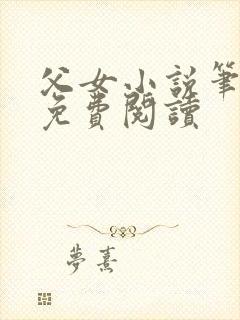 父女小説筆
免費閱讀
夢熹